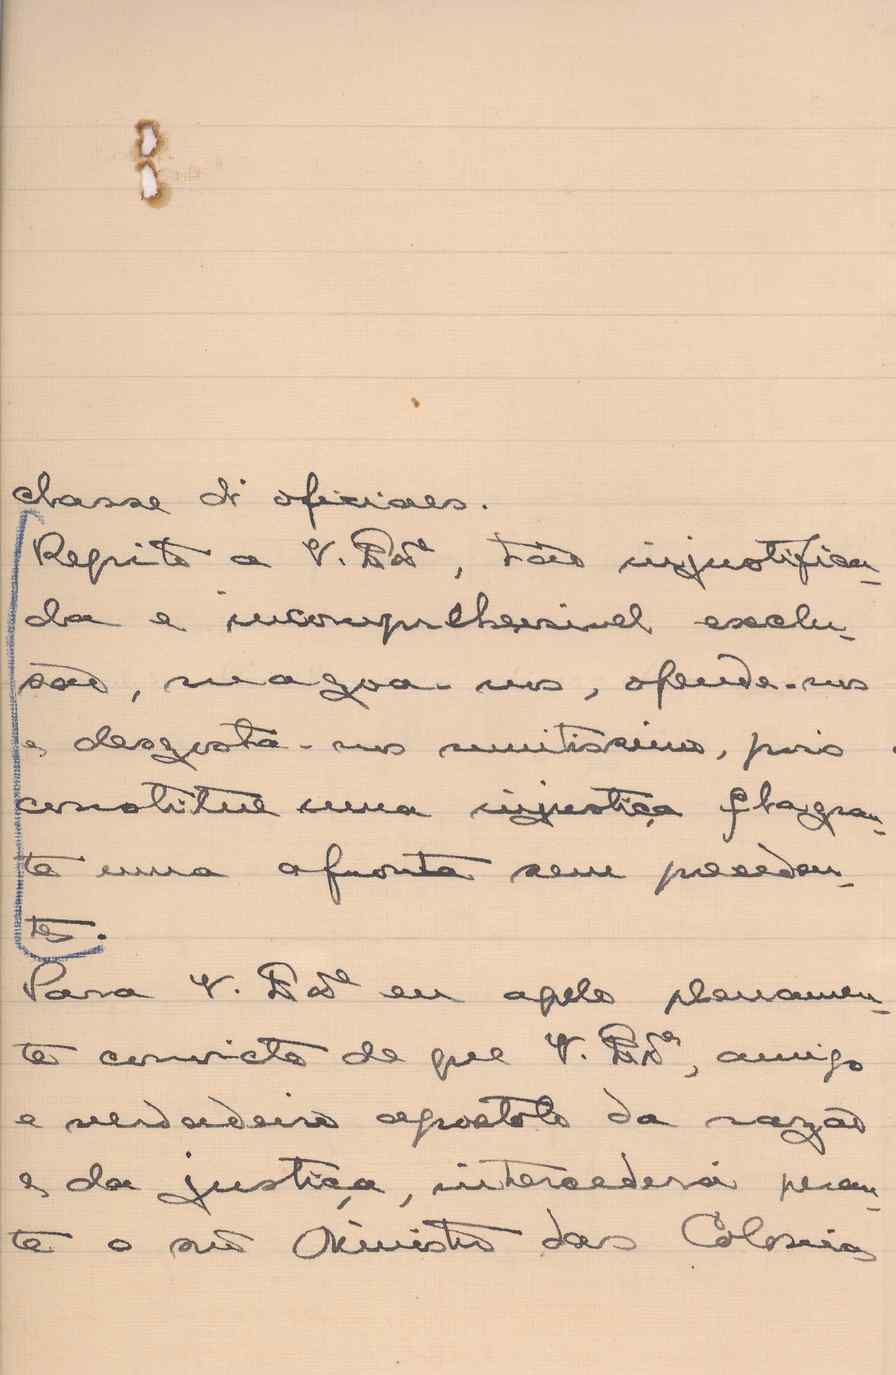 classe de oficiaes.
Repito a V. Exª, tão injustifica-
da e incomprehensivel exclu-
são, magoa-nos, ofende-nos
e desgosta-nos muitissimo, pois
constitue uma injustiça flagran-
te uma afronta sem preceden-
tes.
Para V. Exª eu apelo plenamen-
te convicto de que V. Exª, amigo
e verdadeiro apostolo da razão
e da justiça, intercederá peran-
te o snr Ministro das Colonias